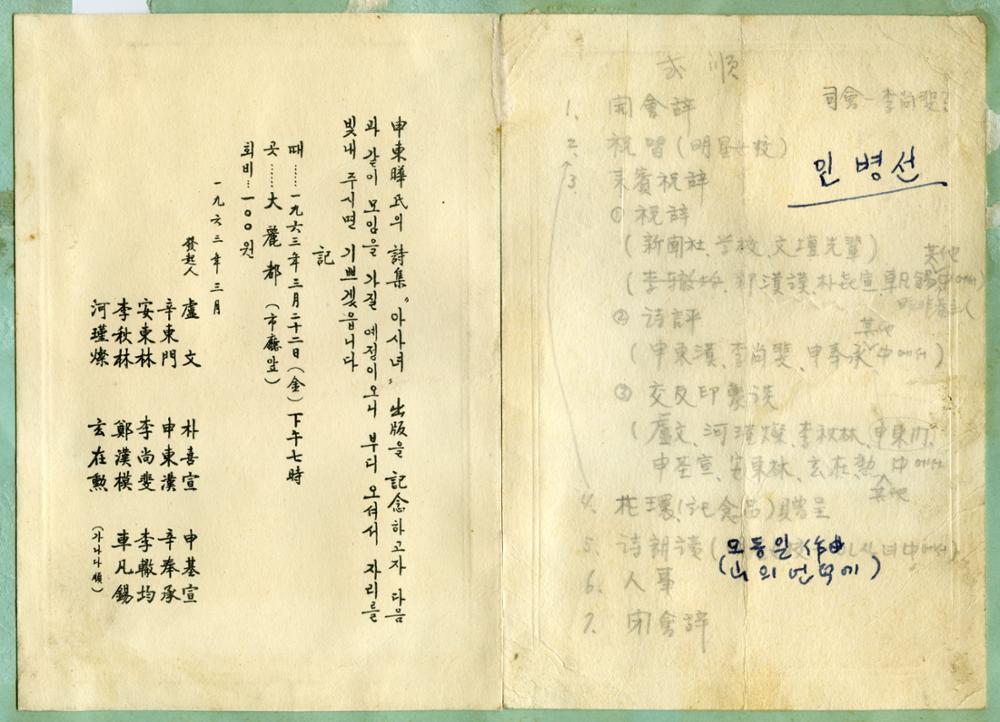 申東曄氏의 詩集 “아사녀” 出版을 記念하고자 다음
과 같이 모임을 가질 예정이오니 부디 오셔서 자리를
빛내 주시면 기쁘겠읍니다
記
때……一九六三年三月二十二日(金) 下午七時
곳……大麗都 (市廳앞)
회비…一○○원
一九六三年三月
發起人
盧文 朴喜宣 申基宣
辛東門 申東漢 辛奉承
安東林 李尙斐 李轍均
李秋林 鄭漢模 車凡錫
河瑾燦 玄在勳 (가나다順)
式順
司會-李尙斐
1. 開會辞
2. 祝
3. 来賓祝辞
① 祝辞
(新聞社、学校、文壇先輩)
其他
② 詩評
其他
(申東漢、李尚斐、申奉承 中에서)
③ 交友印象
(盧文、河瑾燦、李秋林、申東門、
申基宣、安東林、玄在勲 中에서
其他
4. 花環(記念品)贈呈
5. 詩朗讀
6. 人事
7. 閉會辞
인병선
모동일 作曲
(山의 언덕에)